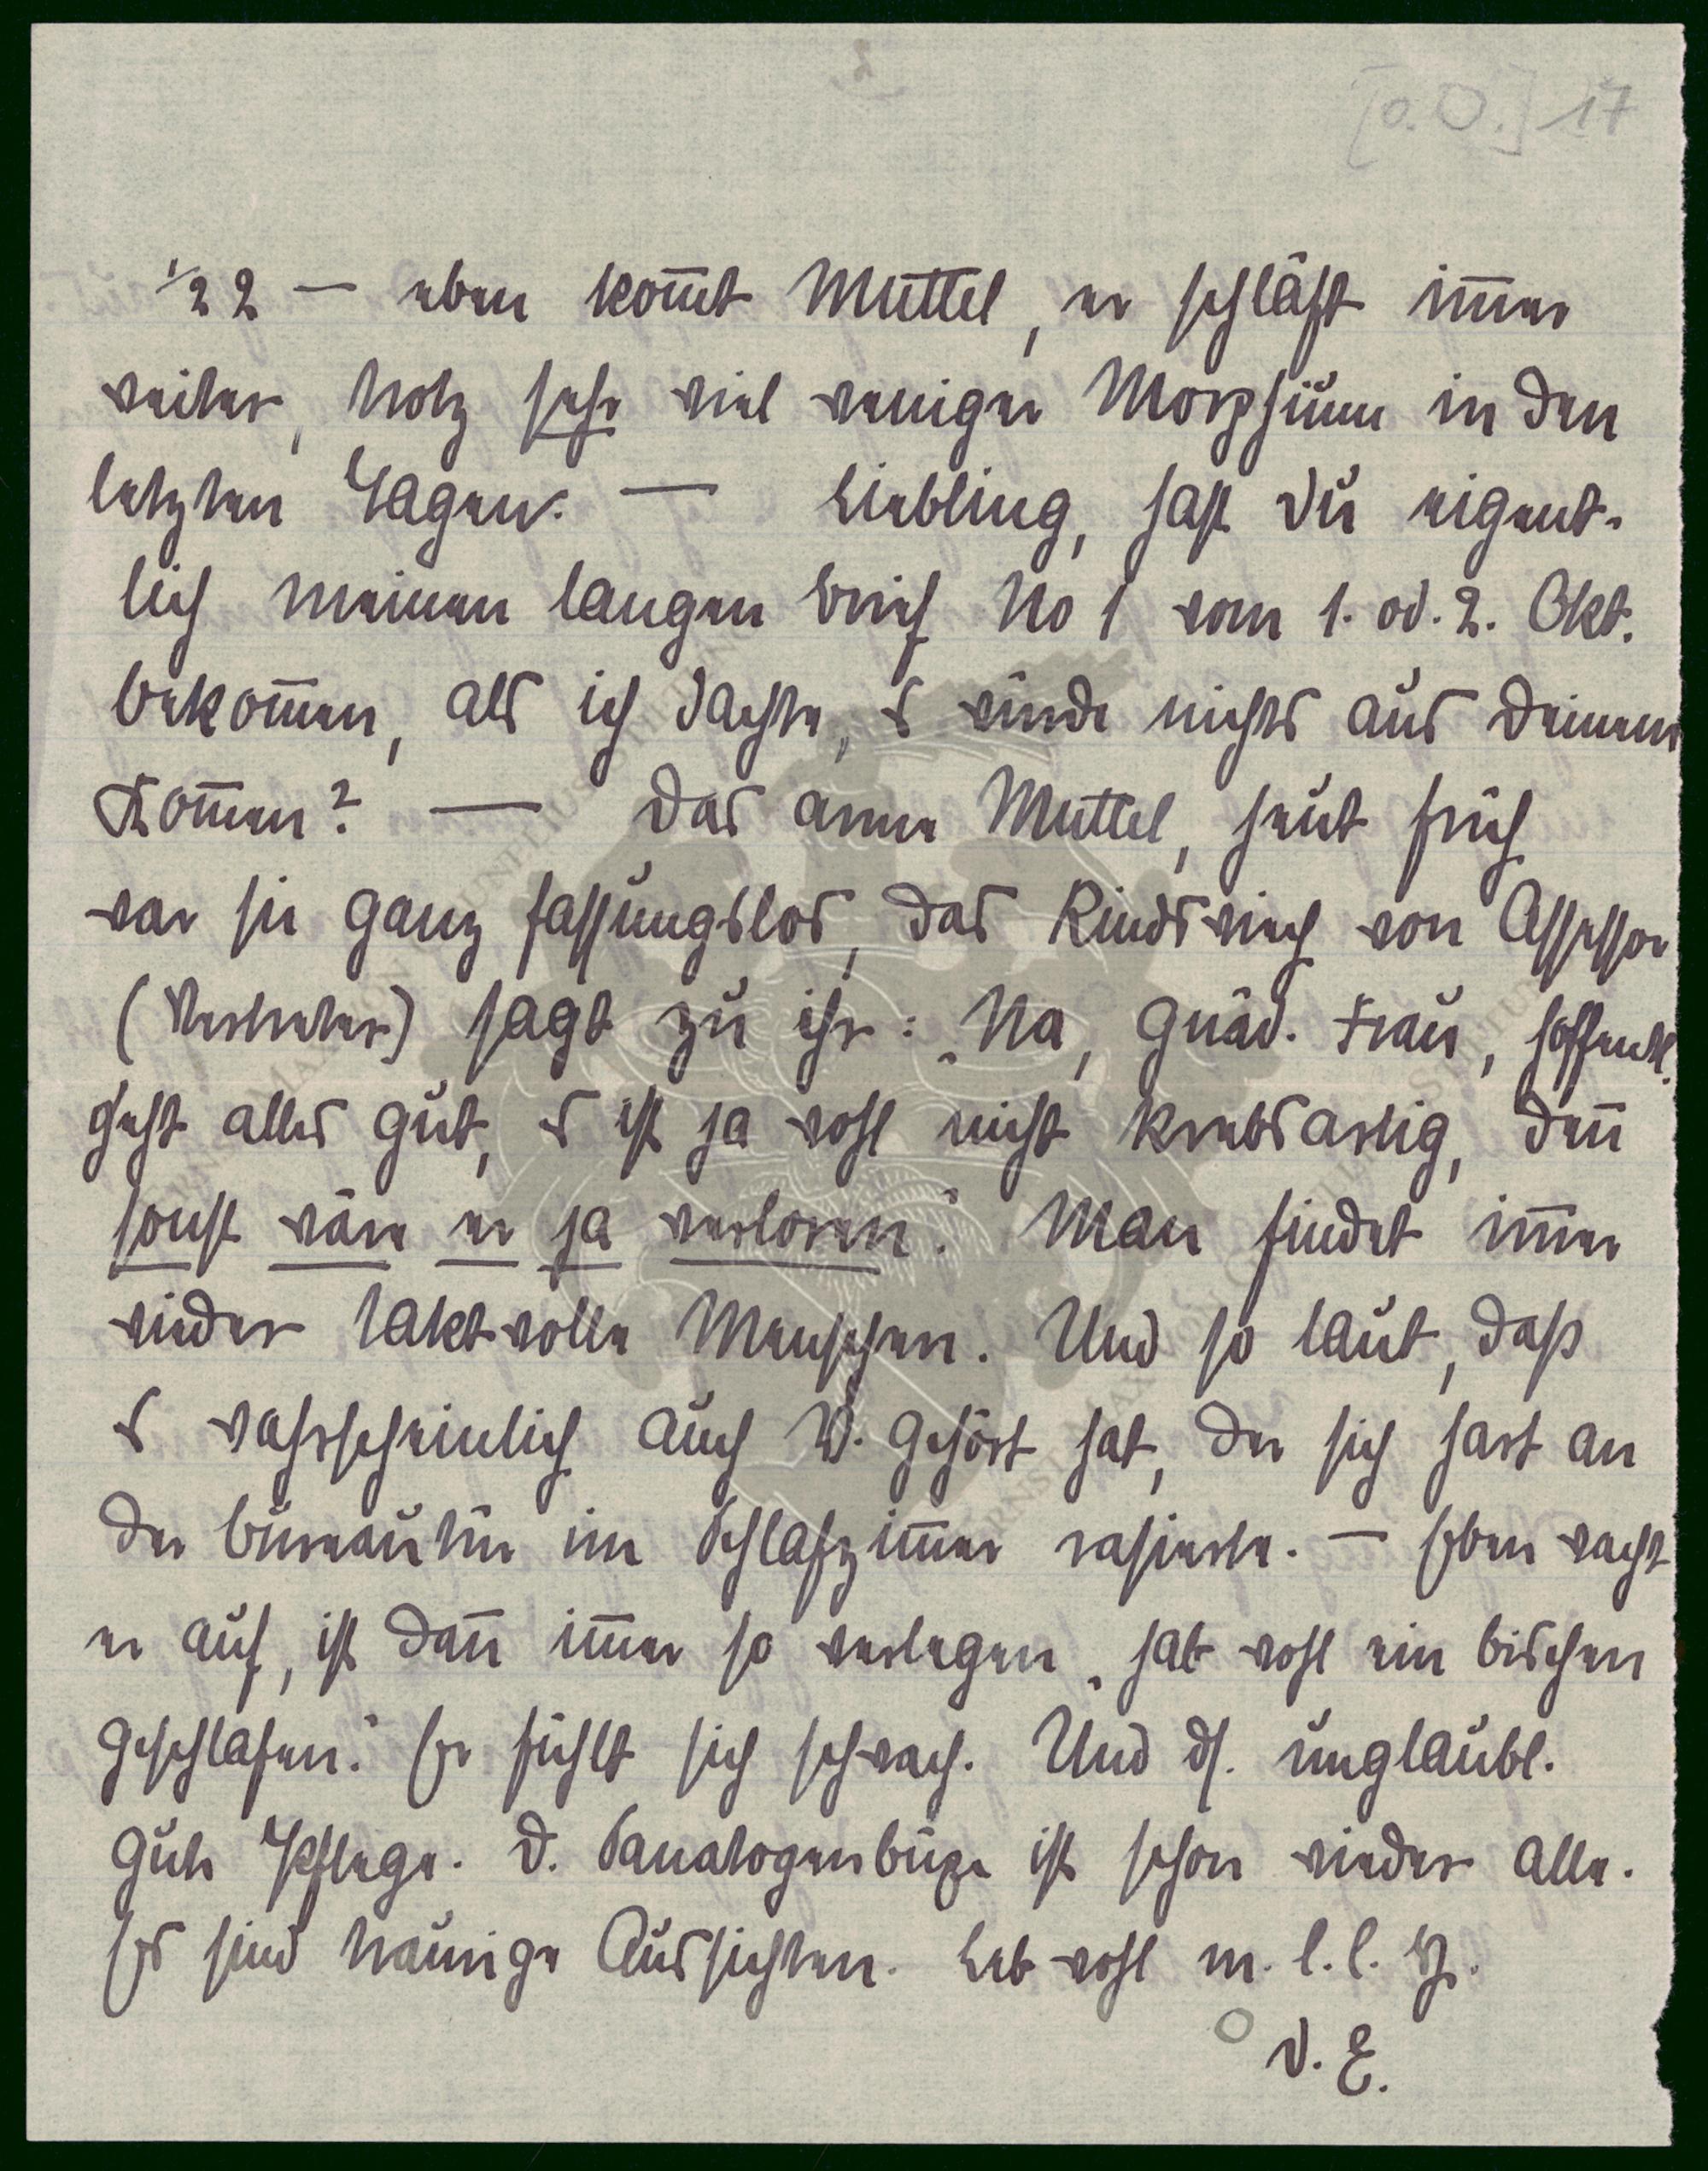 [o. O.] 17
1/2 2 — eben kom̅t Muttel, er schläft im̅er
weiter, trotz sehr viel weniger Morphium in den
letzten Tagen. — Liebling, hast Du eigent-
lich meinen langen Brief No 1 vom 1. od. 2. Okt.
bekom̅en, als ich dachte, es würde nichts aus Deinem
Kom̅en? — Das arme Muttel, heut früh
war sie ganz fassungslos, das Rindsviech von Assessor
(Vertreter) sagt zu ihr: „Na, gnäd. Frau, hoffentl.
geht alles gut, es ist ja wohl nicht krebsartig, den̅
sonst wäre er ja verloren." Man findet im̅er
wieder taktvolle Menschen. Und so laut, daß
es wahrscheinlich auch V. gehört hat, der sich hart an
der Bureautür im Schlafzim̅er rasierte. — Eben wacht
er auf, ist dan̅ im̅er so verlegen „hab wohl ein bischen
geschlafen." Er fühlt sich schwach. Und ds. unglaubl.
gute Pflege. D. Sanatogenbüxe ist schon wieder alle.
Es sind traurige Aussichten. Leb wohl m. l. l. H.
D. E.